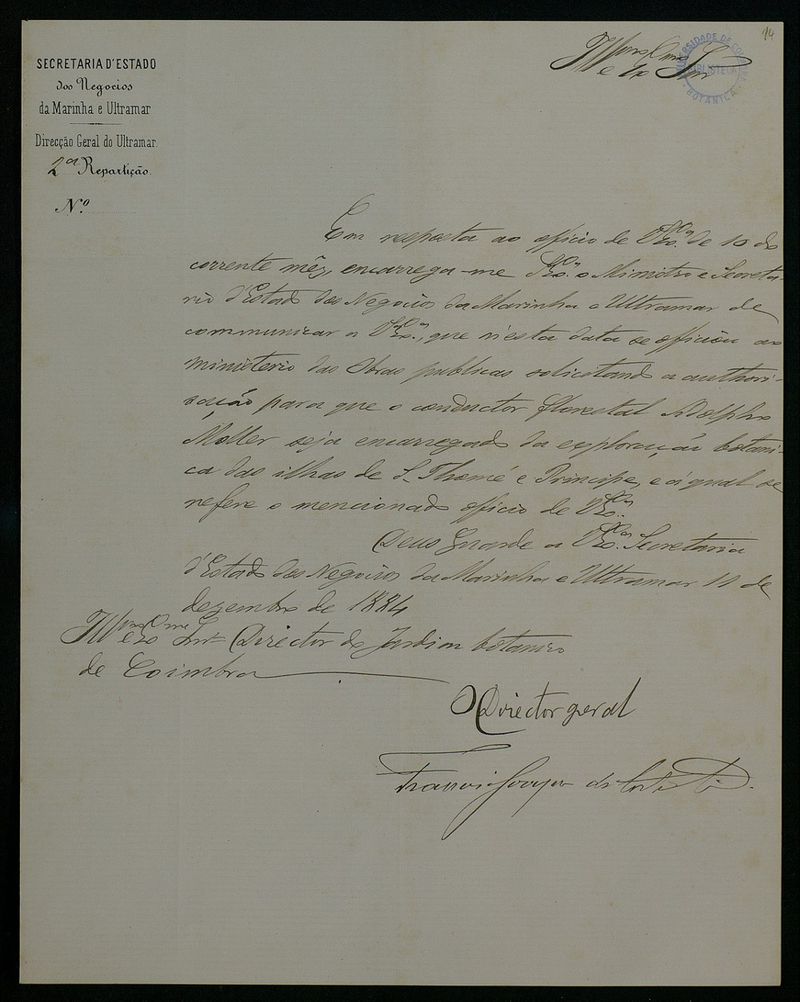 14
SECRETARIA D'ESTADO
dos Negocios
da Marinha e Ultramar
Direcção Geral do Ultramar
2ª Repartição
N.º
UNIVERSIDADE DE COIMBRA
BIBLIOTECA
BOTANICA
Illmo e Exmo Snr
Em resposta ao officio de V. Exª. de 10 do
corrente mês, encarrega-me S. Exª. o Ministro e Secreta-
rio d'Estado dos Negocios da Marinha e Ultramar de
communicar a V. Exª., que n'esta data se officiou ao
ministerio das Obras publicas solicitando a authori-
sação para que o conductor florestal Adolpho
Moller seja encarregado da exploração botani-
ca das ilhas de S. Thomé e Principe, e á qual se
refere o mencionado officio de V. Exª.
Deus Guarde a V. Exª. Secretaria
d'Estado dos Negocios da Marinha e Ultramar 11 de
dezembro de 1884
Illmo e Exmo Snr. Director do Jardim botanico
de Coimbra
O Director geral
Francisco da Costa